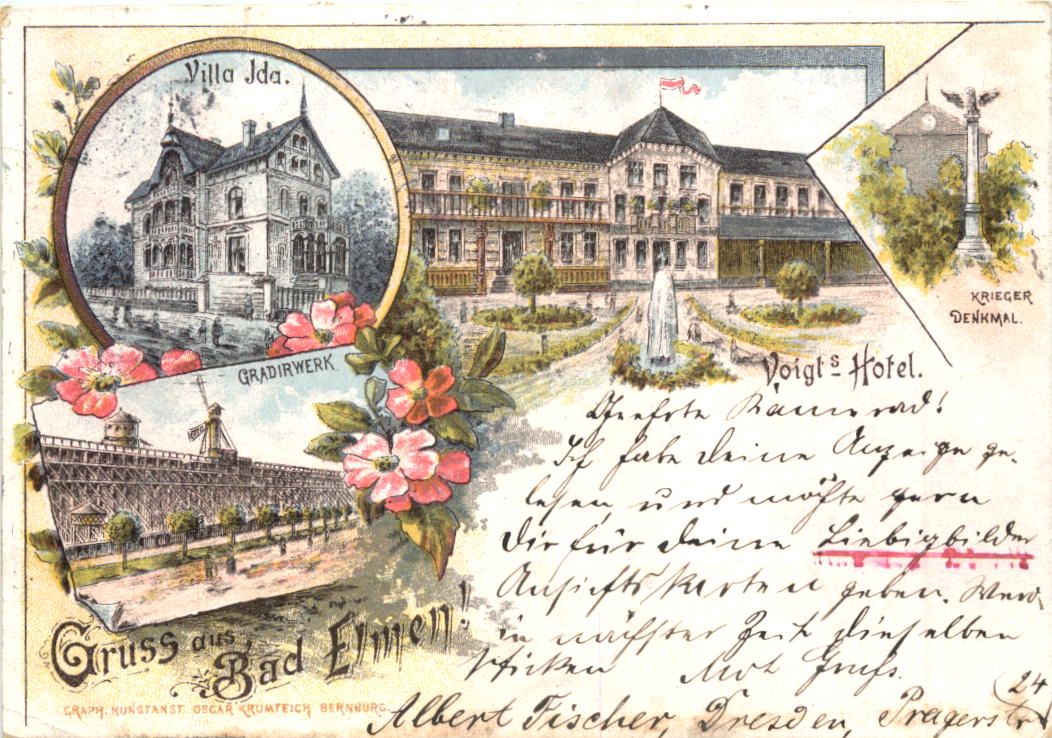 Villa Ida.
KRIEGER
DENKMAL.
GRADIRWERK
Voigts Hotel.
Geehrte Kamerad!
Ich habe deine Anzeige ge-
lesen und möchte gern
dir für deine Liebigbilder
Ansichtskarten geben. Werd
in nächster Zeit dieselben
schicken Mit Gruß.
24
Albert Fischer, Dresden, Pragerstr
Gruss aus
Bad Elmen!
GRAPH. KUNSTANST. OSCAR KRUMTEICH BERNBURG.